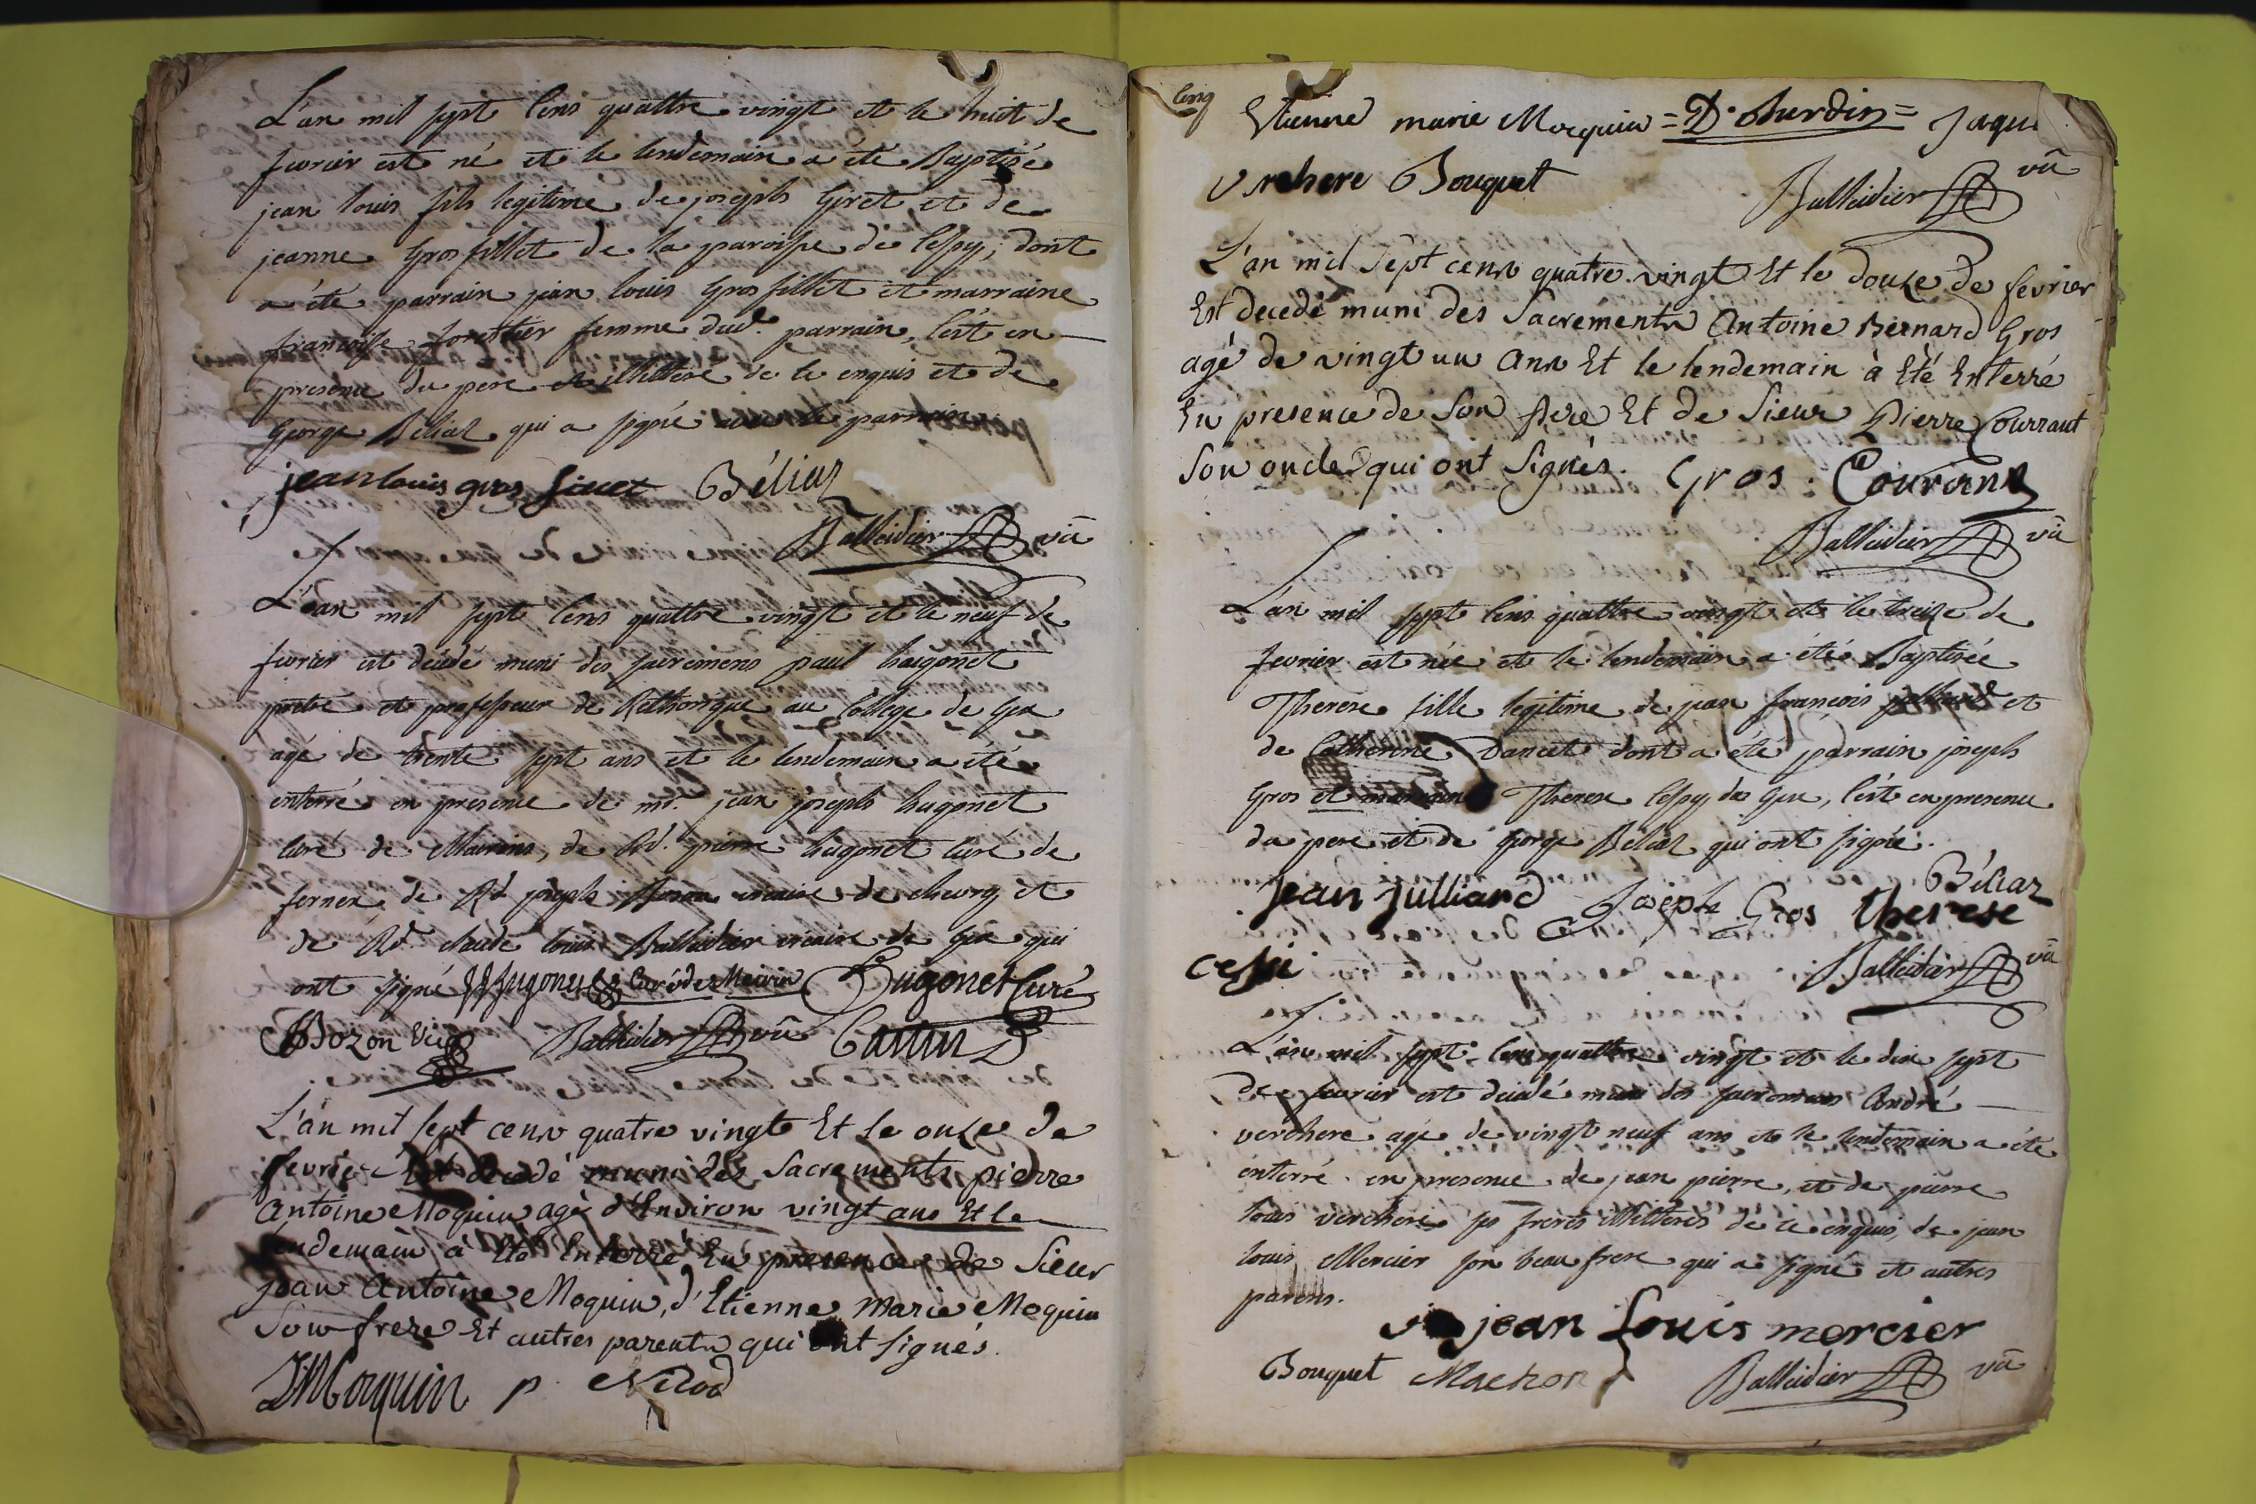 L'an mil sept cens quattre vingt et le huit de
fevrier est né et le lendemain a été Baptisé
jean louis fils legitime de joseph Giret et de
jeanne Grosfillet de la paroisse de Cessy, dont
a été parrain jean louis Grosfillet et marraine
françoise forestier femme dud. parrain, c'est en
presence du pere illitteré de ce enquis et de
George Béliaz qui a signé avec le parrain
jean louis gros filliet Béliaz
Ballaidier vic
L'an mil sept cens quattre vingt et le neuf de
fevrier est décédé muni des sacremens paul hugonet
prêtre et professeur de Rethorique au College de Gex
agé de trente sept ans et le lendemain a été
enterré en presence de mr. jean joseph hugonet
curé de Mairins, de Rd. pierre hugonet curé de
fernex, de Rd joseph Bozon vicaire de chevry, et
de Rd. claude louis Ballaidier vicaire de Gex qui
ont signé JJ hugonet Curé de Meirin Hugonet Curé
Bozon Vic Ballaidier vic
L'an mil sept cens quatre vingt Et le onze de
fevrier Est decedé muni des Sacrements pierre
Antoine Moquin agé d'Environ vingt ans Et le
lendemain à Eté Enterré En presence de Sieur
jean Antoine Moquin, d'Etienne Marie Moquin
Son frere Et autres parents qui ont signés.
Moquin p. Nicod
Etienne marie Mocquin = D. Durdin = Jaque
verchere Bouquet
Ballaidier vic
L'an mil Sept cens quatre vingt Et le douze de fevrier
Est decedé muni des Sacrements Antoine Bernard Gros
agé de vingt un ans Et le lendemain à Eté Enterré
En presence de Son Pere Et de Sieur Pierre Courant
Son oncle qui ont Signés. Gros Courant
Ballaidier vic
L'an mil sept cens quattre vingt et le treize de
fevrier est née et le lendemain a été Baptisée
Therese fille legitime de jean françois julliard et
de Catherine Dancet dont a été parrain joseph
Gros et marraine Therese Cessy de Gex, c'est en presence
du pere et de George Béliaz qui ont signé.
Béliaz
Jean Julliard Joseph Gros therese
cessi Ballaidier vic
L'an mil sept cens quattre vingt et le dix sept
de fevrier est décédé muni des sacremens André
verchere agé de vingt neuf ans et le lendemain a été
enterré en presence de jean pierre, et de pierre
louis verchere ses freres illitterés de ce enquis, de jean
louis Mercier son beau frere qui a signé et autres
parens.
jean louis mercier
Bouquet Machon Ballaidier vic